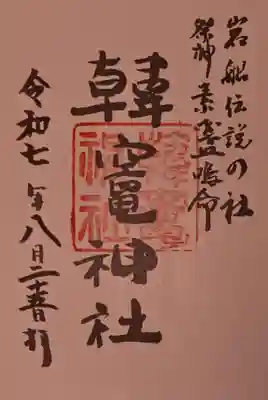 岩船伝説の社
祭神素盞嗚命
韓竈神社
令和七年八月二十